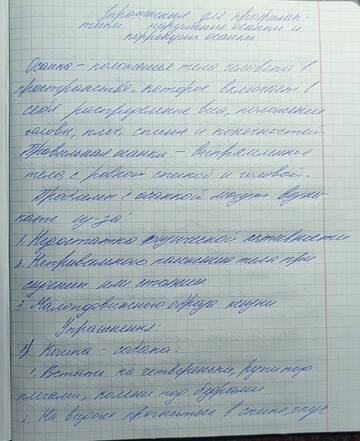 Упражнения для профилак-
тики нарушения осанки и
коррекции осанки
Осанка – положения тела человека в
пространстве, которое включает в
себя распределение веса, положение
головы, плеч, спины и конечностей.
Правильная осанка – выпрямленное
тело, с ровной спиной и головой.
Проблемы с осанкой могут возни-
кать из-за:
1. Недостатка физической активности
2. Неправильного положения тела при
сидении или стоянии
3. Малоподвижного образа жизни
Упражнения:
1) Кошка – собака:
1. Встать на четвереньки, руки под
плечами, колени под бёдрами
2. На вдохе прогнуться в спине, опус-